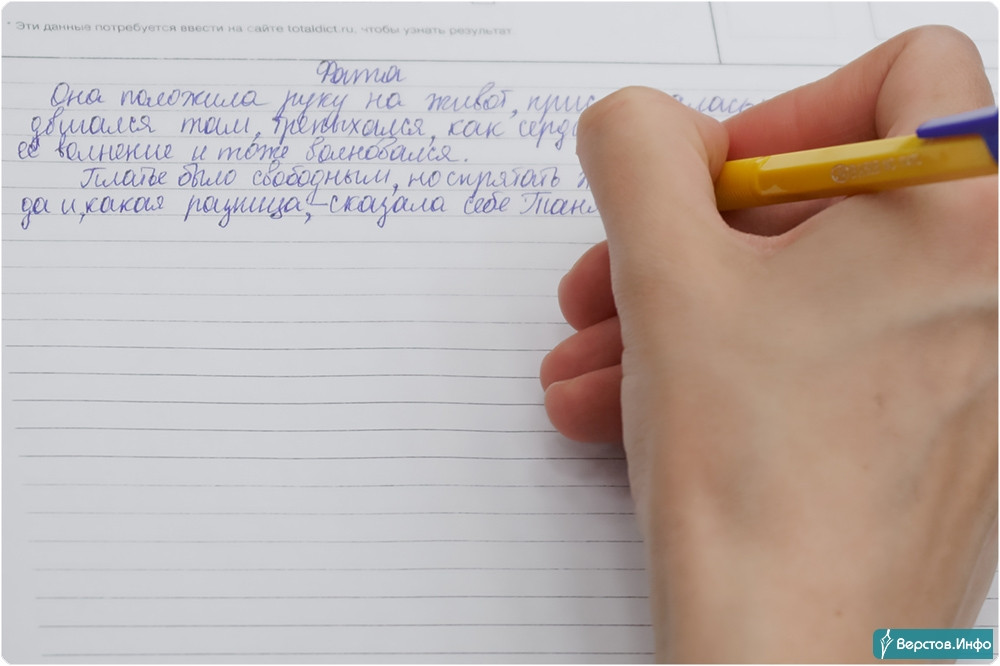 * Эти данные потребуется ввести на сайте totaldict.ru, чтобы узнать результат.
Фата
Она положила руку на живот,
двигался там, трепыхался, как
её волнение и тоже волновался.
Платье было свободным, но спрятать
да и, какая разница, – сказала себе
Верстов.Инфо